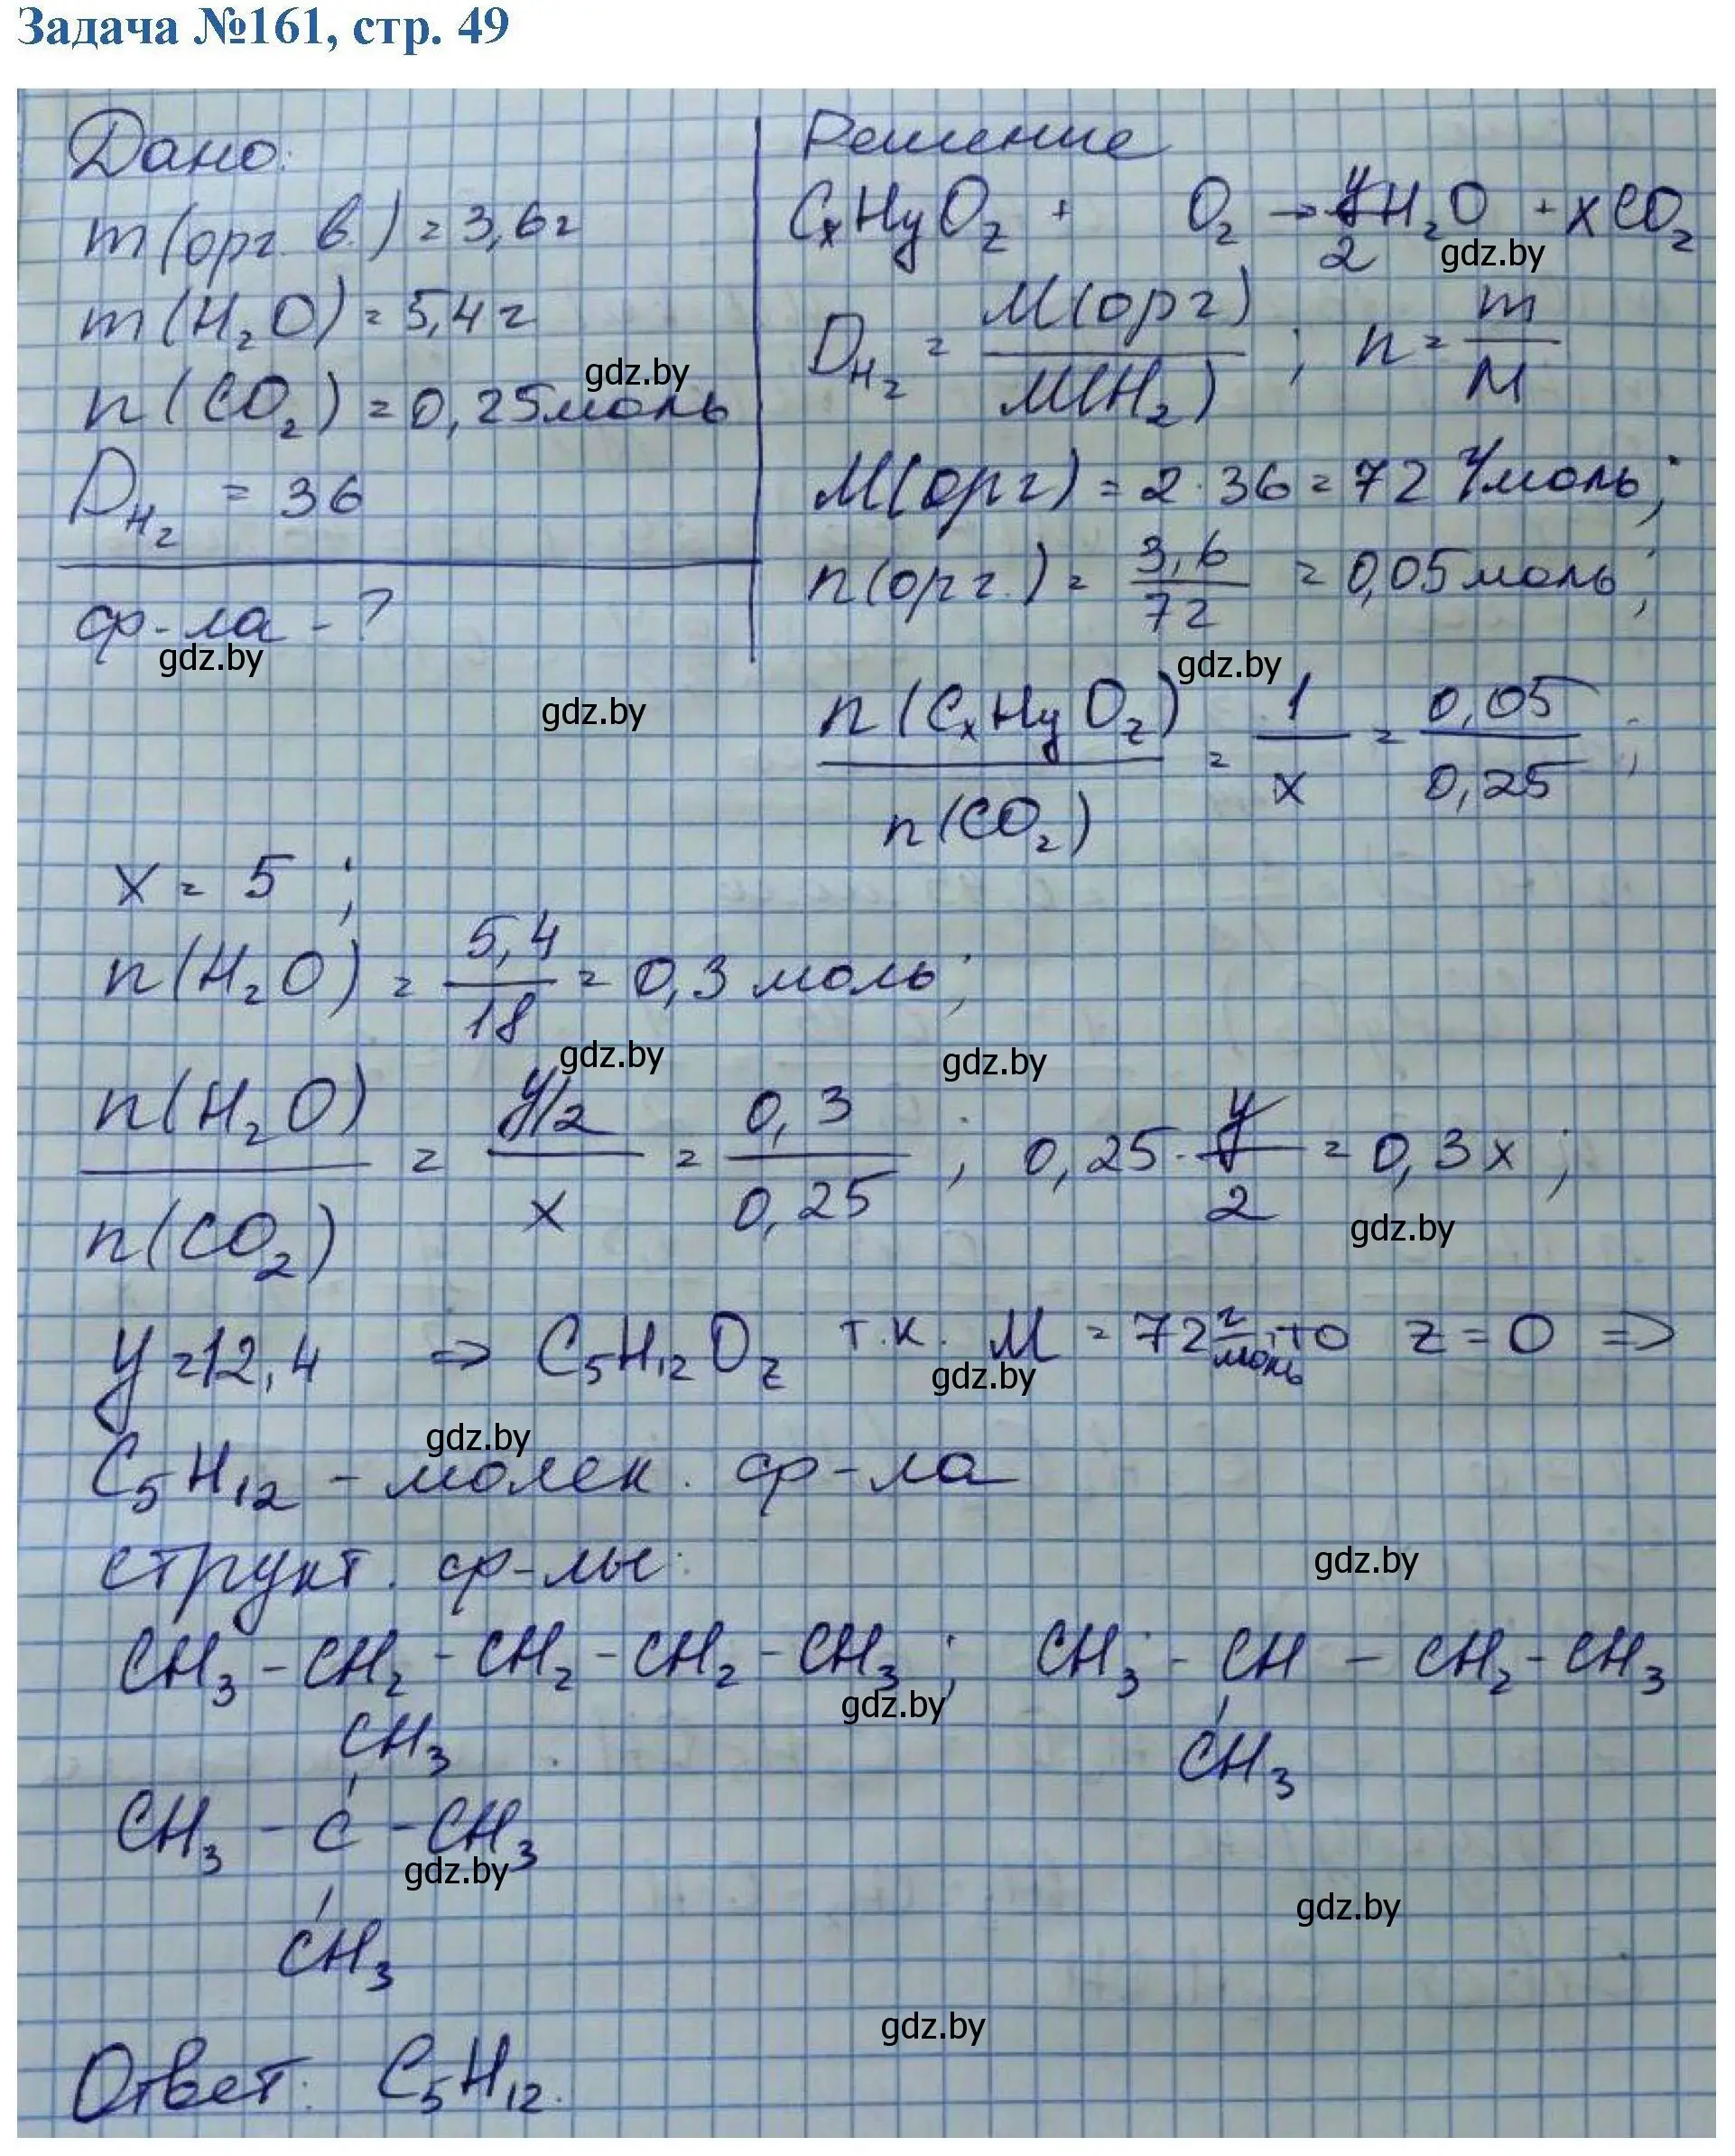 Задача №161, стр. 49
Дано:
m(орг. в.) = 3,6г
m(H₂O) = 5,4г
gdz.by
n(CO₂) = 0,25моль
D_H₂ = 36
ф-ла - ?
gdz.by
gdz.by
Решение
CₓHᵧO_z + O₂ → y/2 H₂O + xCO₂
gdz.by
D_H₂ = M(орг) / M(H₂) ; n = m/M
M(орг) = 2·36 = 72 г/моль;
n(орг.) = 3,6/72 = 0,05моль;
gdz.by
n(CₓHᵧO_z) / n(CO₂) = 1/x = 0,05/0,25 ;
x = 5 ;
n(H₂O) = 5,4/18 = 0,3 моль;
gdz.by gdz.by
n(H₂O) / n(CO₂) = y/2 / x = 0,3/0,25 ; 0,25·y/2 = 0,3x ;
gdz.by
y=12,4 ⇒ C₅H₁₂O_z т.к. M = 72 г/моль, то z = 0 ⇒
gdz.by
gdz.by
C₅H₁₂ - молек. ф-ла
структ. ф-лы:
gdz.by
CH₃-CH₂-CH₂-CH₂-CH₃ ; CH₃-CH-CH₂-CH₃
gdz.by
CH₃ CH₃
CH₃-C-CH₃
gdz.by
gdz.by
CH₃
gdz.by
Ответ: C₅H₁₂.